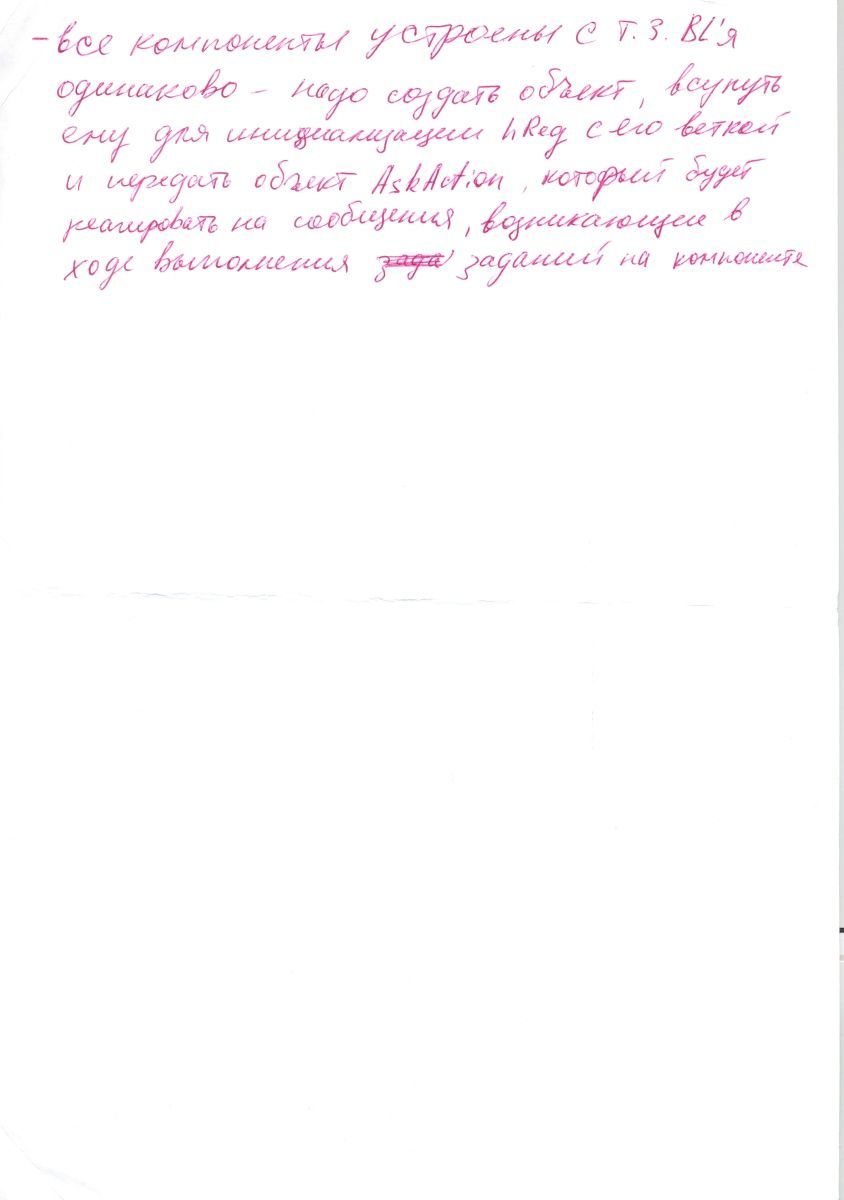 – все компоненты устроены с т.з. BL'я
одинаково – надо создать объект, всунуть
ему для инициализации hReg с его веткой
и передать объект AskAction, который будет
реагировать на сообщения, возникающие в
ходе выполнения зада заданий на компоненте